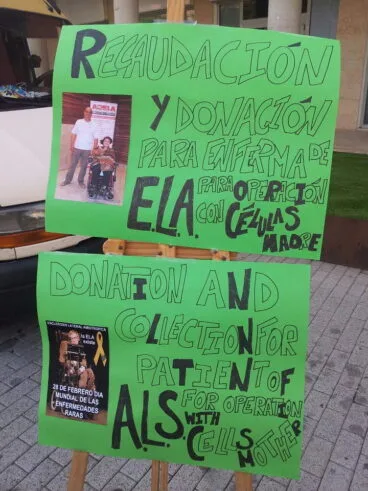 RECAUDACIÓN
Y DONACIÓN
PARA ENFERMA DE
E.L.A. PARA OPERACIÓN
CON CÉLULAS
MADRE
ADELA
DONATION AND
COLLECTION FOR
PATIENT OF
A.L.S. FOR OPERATION
WITH CELLS
MOTHER
ESCLEROSIS LATERAL AMIOTRÓFICA
la ELA
existe
28 DE FEBRERO DIA
MUNDIAL DE LAS
ENFERMEDADES
RARAS